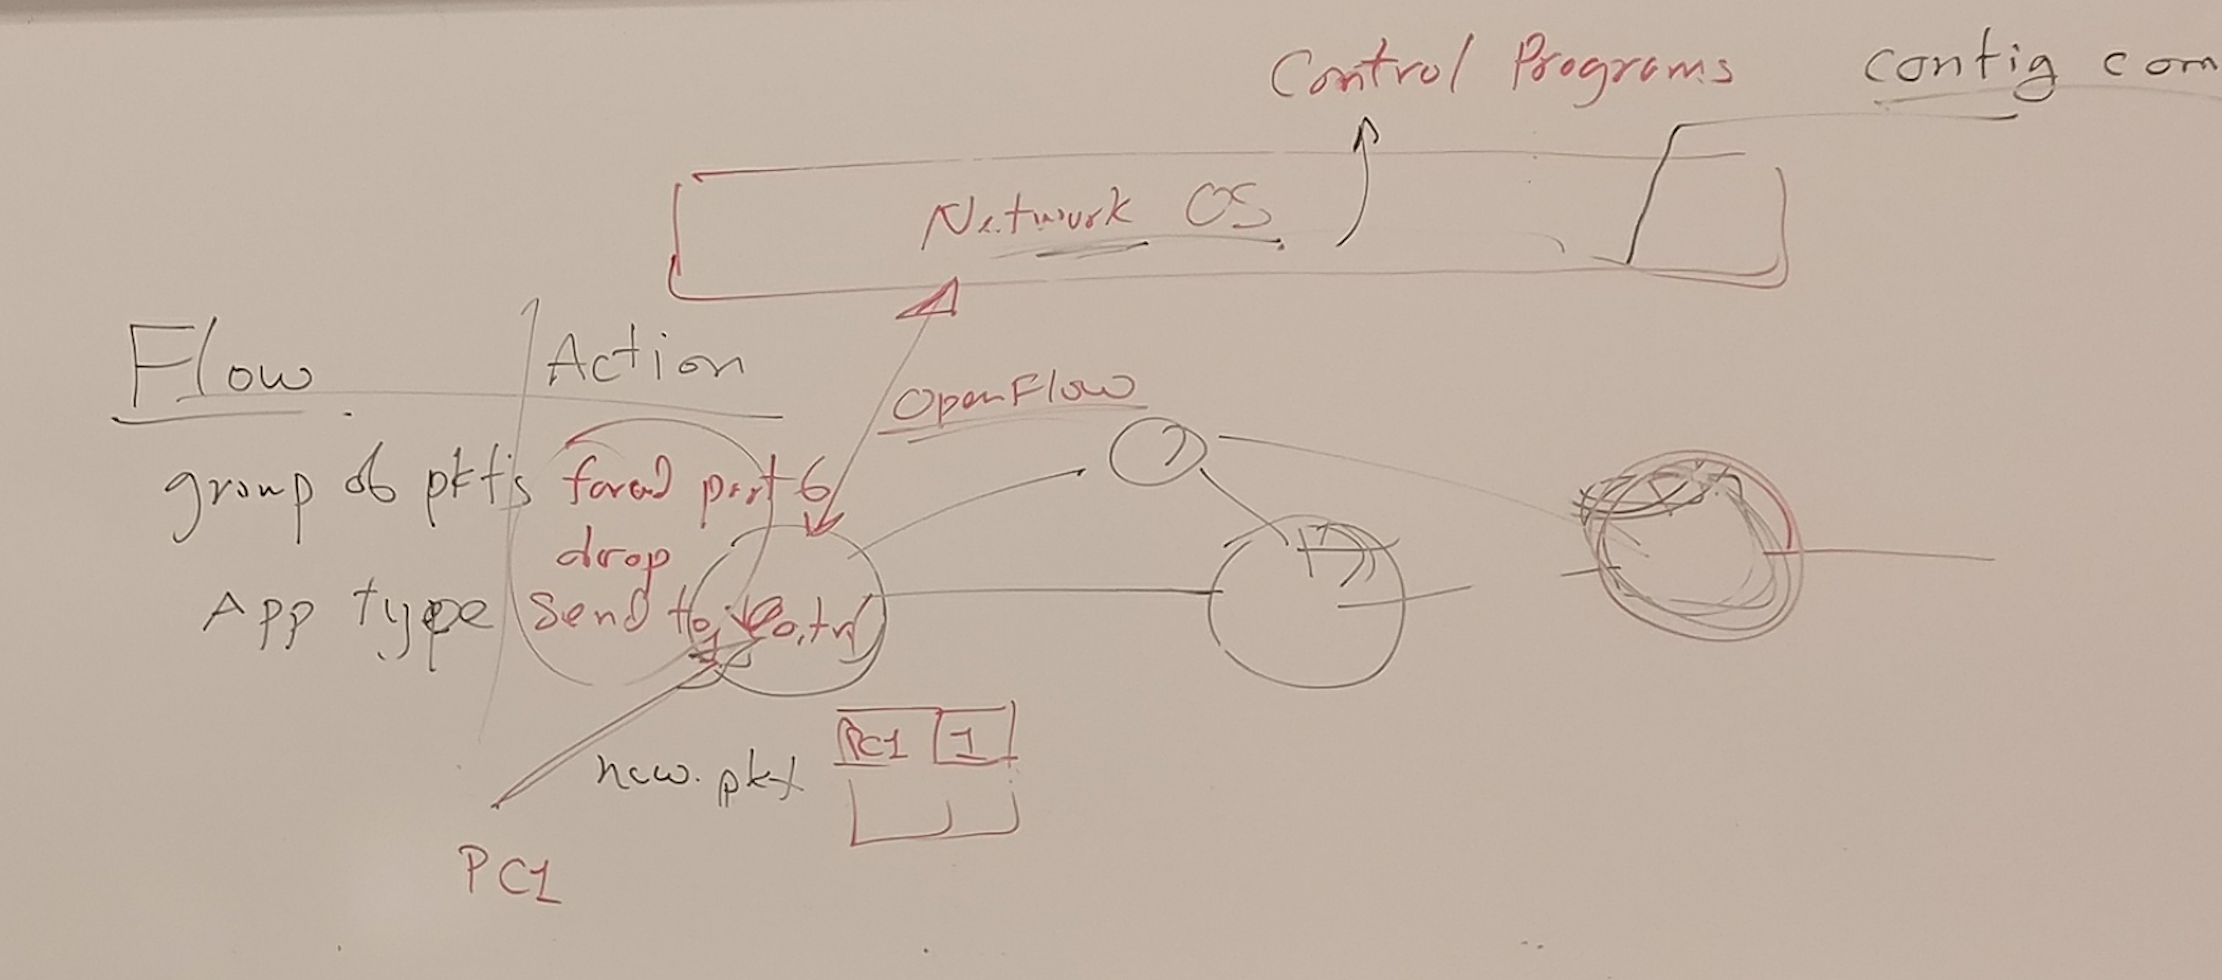 Control Programs config com
Network OS
Flow Action
OpenFlow
group of pkt's
port 6
drop
App type send to
new pkt
PC1 1
PC1